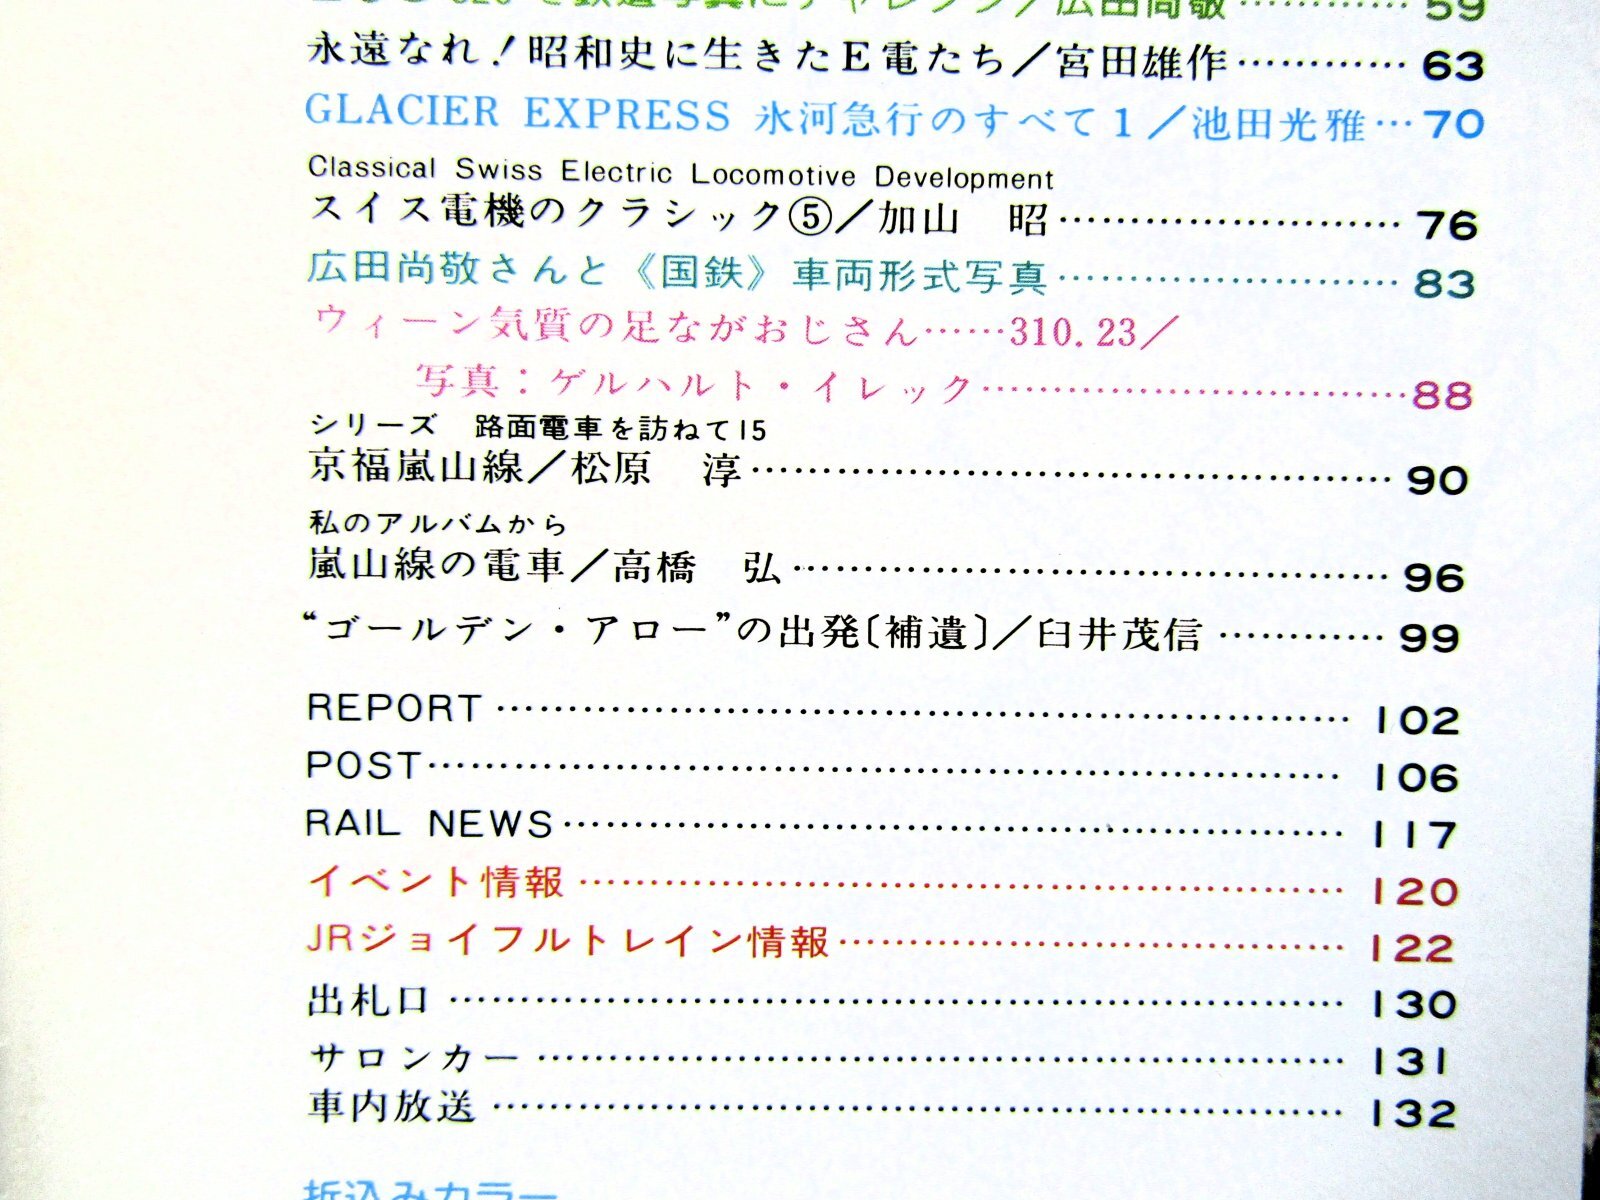 で鉄道写真にチャレンジ／広田尚敬…………59
永遠なれ！昭和史に生きたE電たち／宮田雄作…………63
GLACIER EXPRESS 氷河急行のすべて1／池田光雅…70
Classical Swiss Electric Locomotive Development
スイス電機のクラシック⑤／加山　昭……………………76
広田尚敬さんと《国鉄》車両形式写真……………………83
ウィーン気質の足ながおじさん……310.23／
写真：ゲルハルト・イレック……………………………88
シリーズ　路面電車を訪ねて15
京福嵐山線／松原　淳……………………………………90
私のアルバムから
嵐山線の電車／高橋　弘…………………………………96
“ゴールデン・アロー”の出発〔補遺〕／臼井茂信…………99
REPORT……………………………………………102
POST………………………………………………106
RAIL NEWS………………………………………117
イベント情報………………………………………120
JRジョイフルトレイン情報…………………………122
出札口………………………………………………130
サロンカー…………………………………………131
車内放送……………………………………………132
折込みカラー